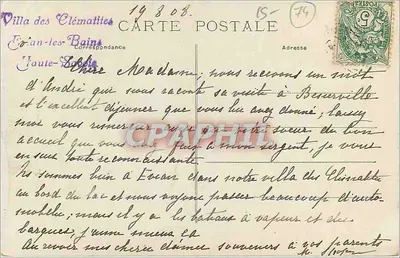 19.8.08.
15-
74
Villa des Clématites
Evian-les-Bains
Haute-Savoie
CARTE POSTALE
Correspondance
Adresse
Chère Madame, nous recevons un mot
d'André qui nous raconte sa visite à Beuseville
et l'excellent déjeuner que vous lui avez donné, laissez
moi vous remercier votre soeur du bon
accueil que vous à mon sergent, je vous
en suis toute reconnaissante
Ns sommes bien à Evian dans notre villa des Clématites
au bord du lac et nous voyons passer beaucoup d'auto-
mobile, mais il y a les bateaux à vapeur et des
barques j'aime mieux ça
Au revoir mes chères dames souvenirs à vos parents
CPAPHIL